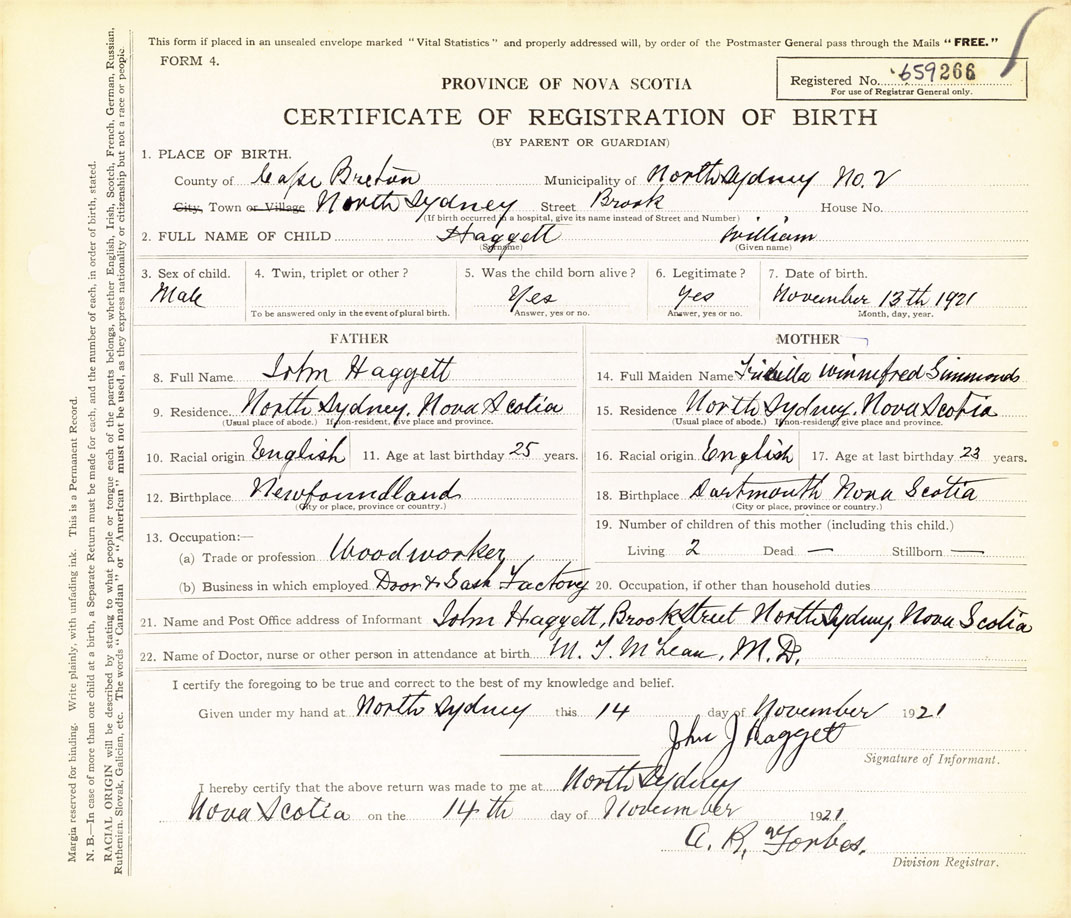 This form if placed in an unsealed envelope marked "Vital Statistics" and properly addressed will, by order of the Postmaster General pass through the Mails "FREE."
FORM 4.
Registered No. 659266
For use of Registrar General only.
PROVINCE OF NOVA SCOTIA
CERTIFICATE OF REGISTRATION OF BIRTH
(BY PARENT OR GUARDIAN)
1. PLACE OF BIRTH.
County of Cape Breton Municipality of North Sydney No. 2
City, Town or Village North Sydney Street Brook House No.
(If birth occurred in a hospital, give its name instead of Street and Number)
2. FULL NAME OF CHILD Haggett William
(Surname) (Given name)
3. Sex of child. 4. Twin, triplet or other? 5. Was the child born alive? 6. Legitimate? 7. Date of birth.
Male Yes Yes November 13th 1921
To be answered only in the event of plural birth. Answer, yes or no. Answer, yes or no. Month, day, year.
FATHER MOTHER
8. Full Name John Haggett 14. Full Maiden Name Winnifred Simmonds
9. Residence North Sydney, Nova Scotia 15. Residence North Sydney, Nova Scotia
(Usual place of abode.) If non-resident, give place and province. (Usual place of abode.) If non-resident, give place and province.
10. Racial origin English 11. Age at last birthday 25 years. 16. Racial origin English 17. Age at last birthday 23 years.
12. Birthplace Newfoundland 18. Birthplace Dartmouth Nova Scotia
(City or place, province or country.) (City or place, province or country.)
13. Occupation:— 19. Number of children of this mother (including this child.)
(a) Trade or profession Woodworker Living 2 Dead — Stillborn —
(b) Business in which employed Door & Sash Factory 20. Occupation, if other than household duties
21. Name and Post Office address of Informant John Haggett, Brook Street North Sydney, Nova Scotia
22. Name of Doctor, nurse or other person in attendance at birth M. T. McLean, M.D.
I certify the foregoing to be true and correct to the best of my knowledge and belief.
Given under my hand at North Sydney this 14 day of November 1921
John J Haggett
Signature of Informant.
I hereby certify that the above return was made to me at North Sydney
Nova Scotia on the 14th day of November 1921
A. R. Forbes.
Division Registrar.
Margin reserved for binding. Write plainly, with unfading ink. This is a Permanent Record.
N. B.—In case of more than one child at a birth, a Separate Return must be made for each, and the number of each, in order of birth, stated.
RACIAL ORIGIN will be described by stating to what people or tongue each of the parents belongs, whether English, Irish, Scotch, French, German, Russian,
Ruthenian, Slovak, Galician, etc. The words "Canadian" or "American" must not be used, as they express nationality or citizenship but not a race or people.